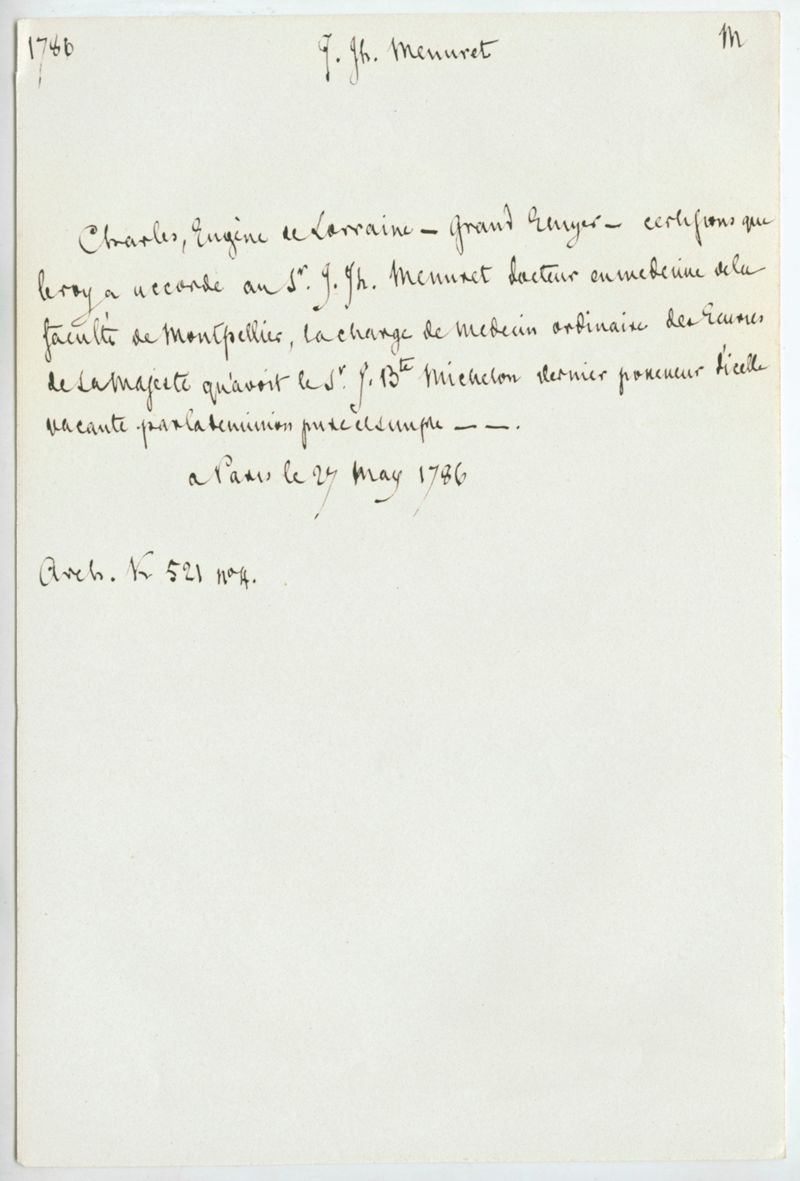 1786 J. Jh. Menuret M
Charles, Eugène de Lorraine — Grand Ecuyer — certifions que
le roy a accordé au Sr. J. Jh. Menuret docteur en medecine de la
faculté de Montpellier, la charge de medecin ordinaire des Ecuries
de Sa Majesté qu'avoit le Sr. J. Bte Michelon dernier possesseur d'icelle
vacante par la demission pure et simple — — .
a Paris le 27 May 1786
Arch. K 521 no 4.